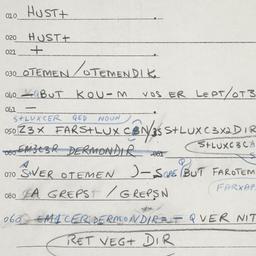 010 HUST+
020 HUST+
021 +
030 OTEMEN / OTEMENDIK
040 BUT KOU-M VOS ER LEPT/OT3
041 —
S+LUXCER QED NOUN
050 Z3X FARS+LUX S+LUXC3X2DIR
060 EM3C3R DERMONDIR
S+LUXC3C
070 S+VER OTEMEN BUT FAROTEM
080 EA GREPS+ / GREPSN
FARXAP
060 EM1CER DERMONDIR QVER NIT
RET VEG+ DIR